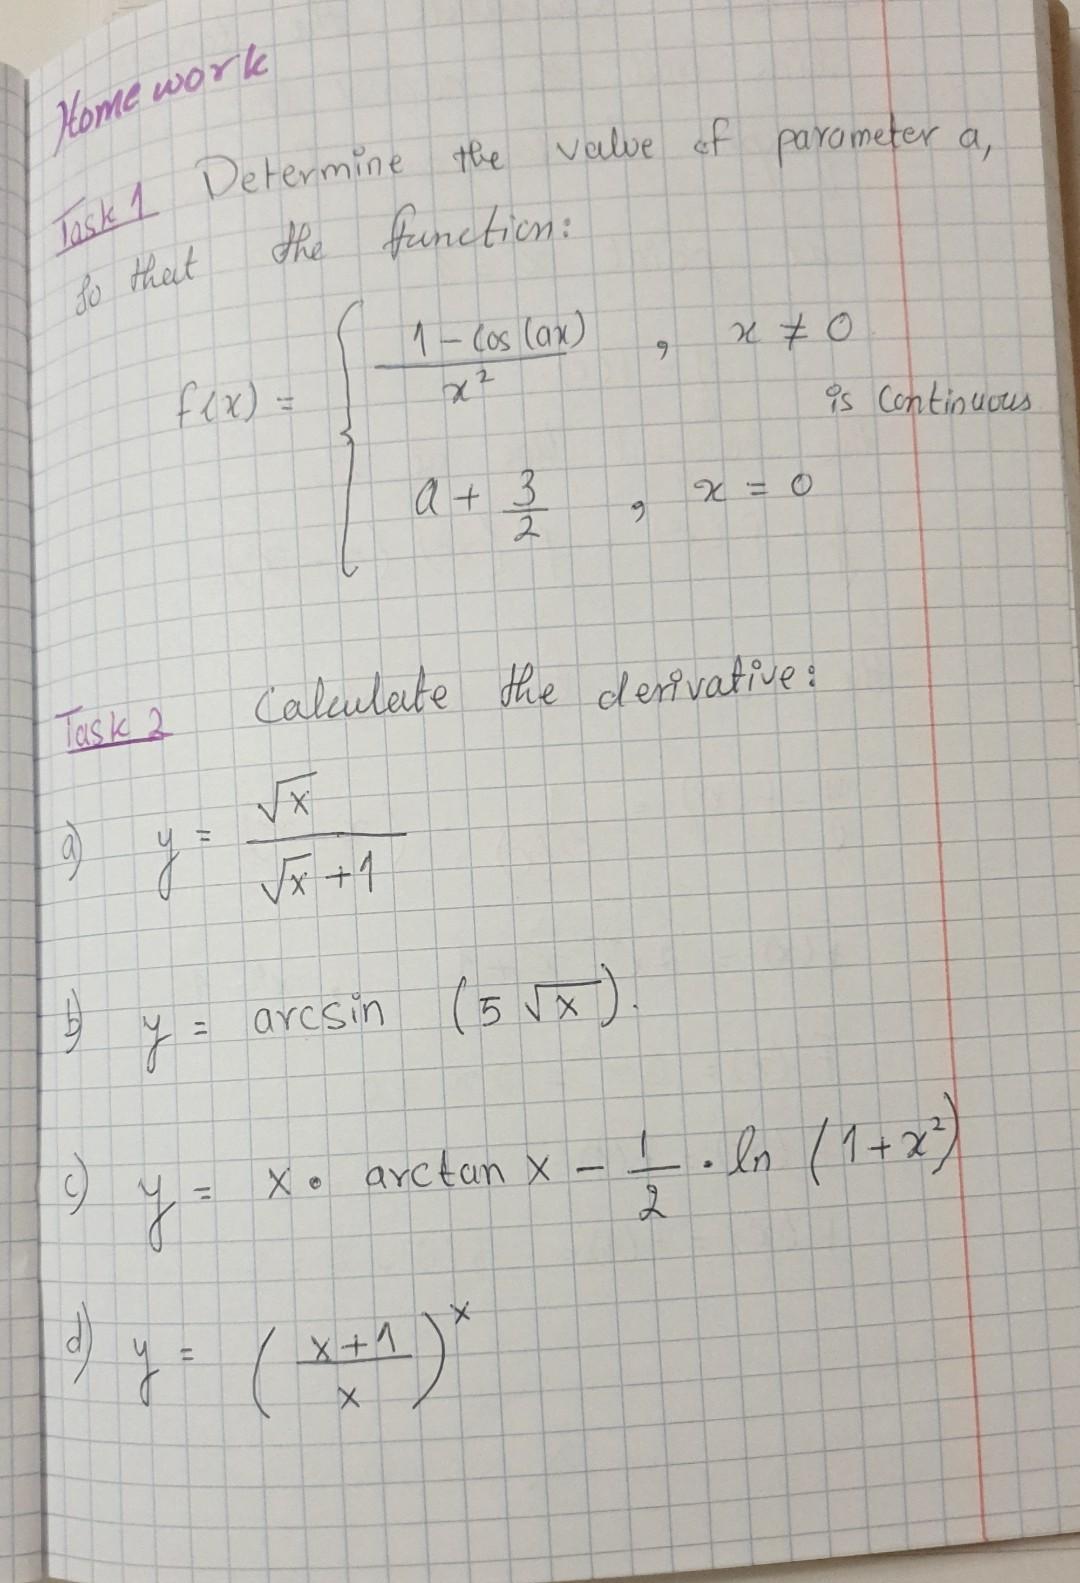 Homework
Task 1 Determine the value of parameter a,
so that the function:
f(x) = { (1 - cos(ax)) / x² , x ≠ 0
is continuous
a + 3/2 , x = 0
Task 2 Calculate the derivative:
a) y = √x / (√x + 1)
b) y = arcsin (5 √x).
c) y = x · arctan x - 1/2 · ln (1 + x²)
d) y = ((x + 1) / x)ˣ